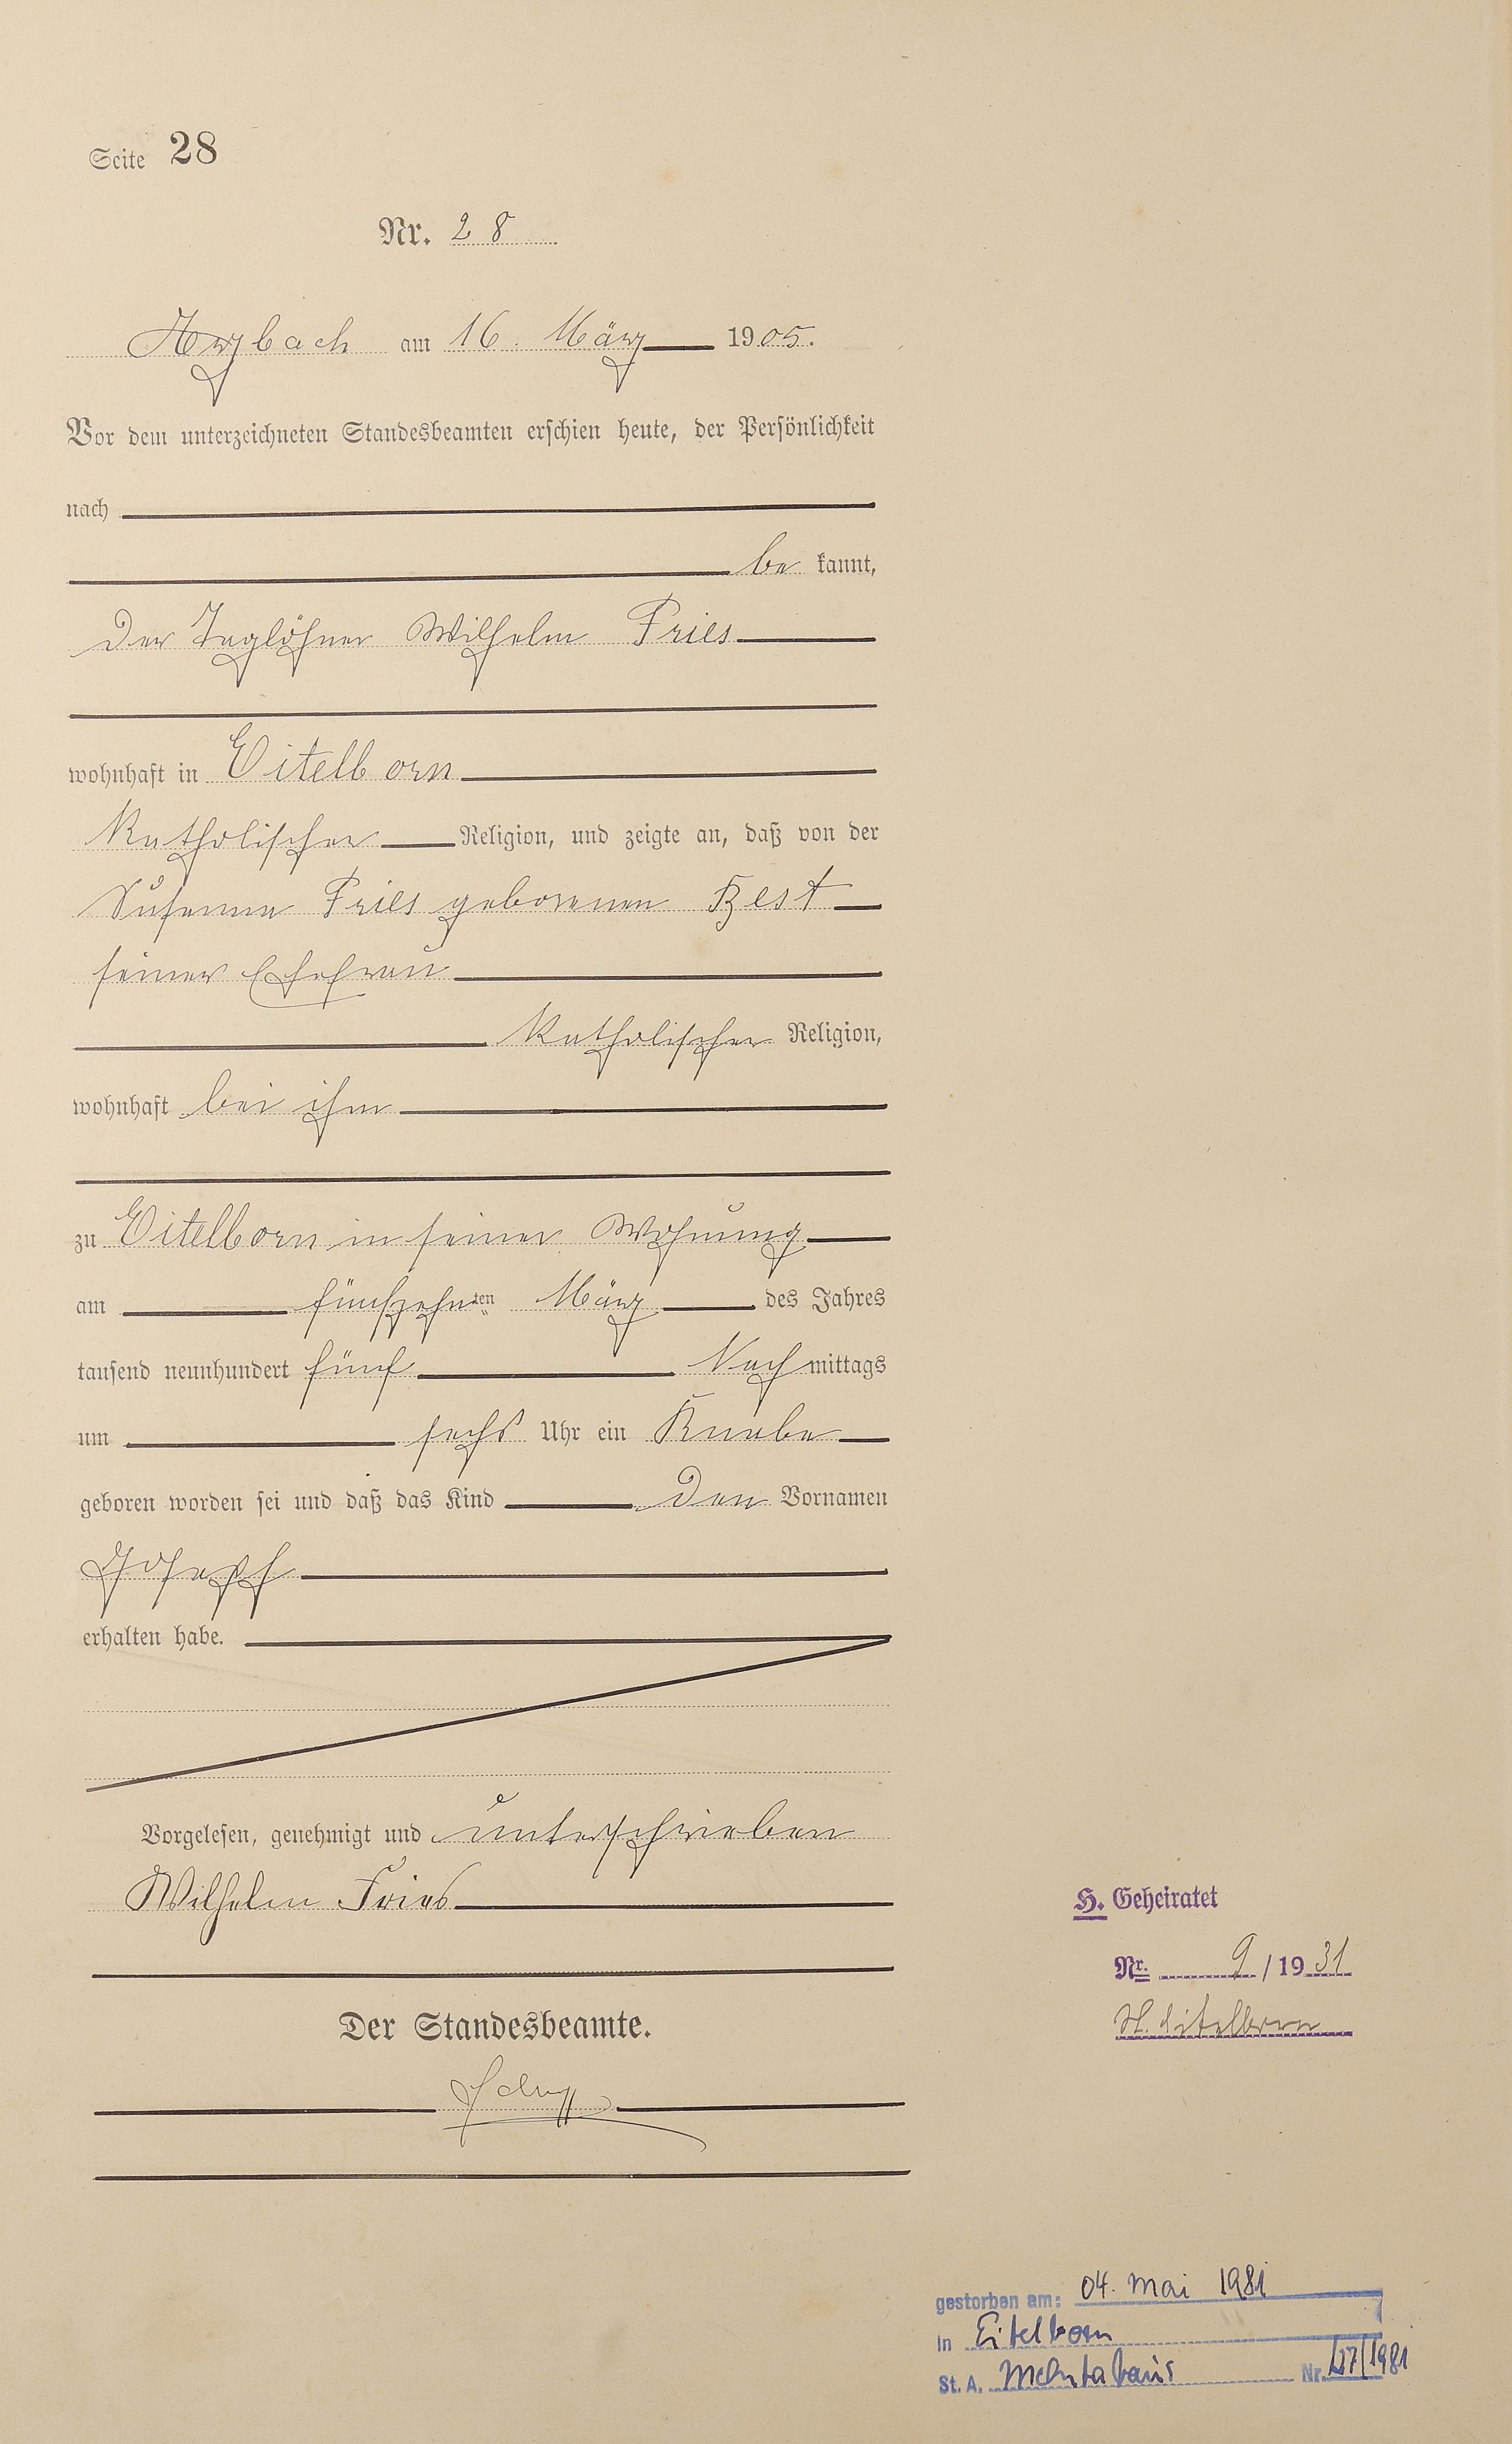 Seite 28
Nr. 28
Arzbach am 16. März 1905.
Vor dem unterzeichneten Standesbeamten erschien heute, der Persönlichkeit
nach
be kannt,
der Taglöhner Wilhelm Fries
wohnhaft in Eitelborn
katholischer Religion, und zeigte an, daß von der
Susanna Fries geborenen Best
seiner Ehefrau
katholischer Religion,
wohnhaft bei ihm
zu Eitelborn in seiner Wohnung
am fünfzehnten März des Jahres
tausend neunhundert fünf Nach mittags
um sechs Uhr ein Knabe
geboren worden sei und daß das Kind den Vornamen
Joseph
erhalten habe.
Vorgelesen, genehmigt und unterschrieben
Wilhelm Fries
Der Standesbeamte.
H. Geheiratet
Nr. 9/1931
St. Eitelborn
gestorben am: 04. Mai 1981
in Eitelborn
St. A. Montabaur Nr. 127/1981